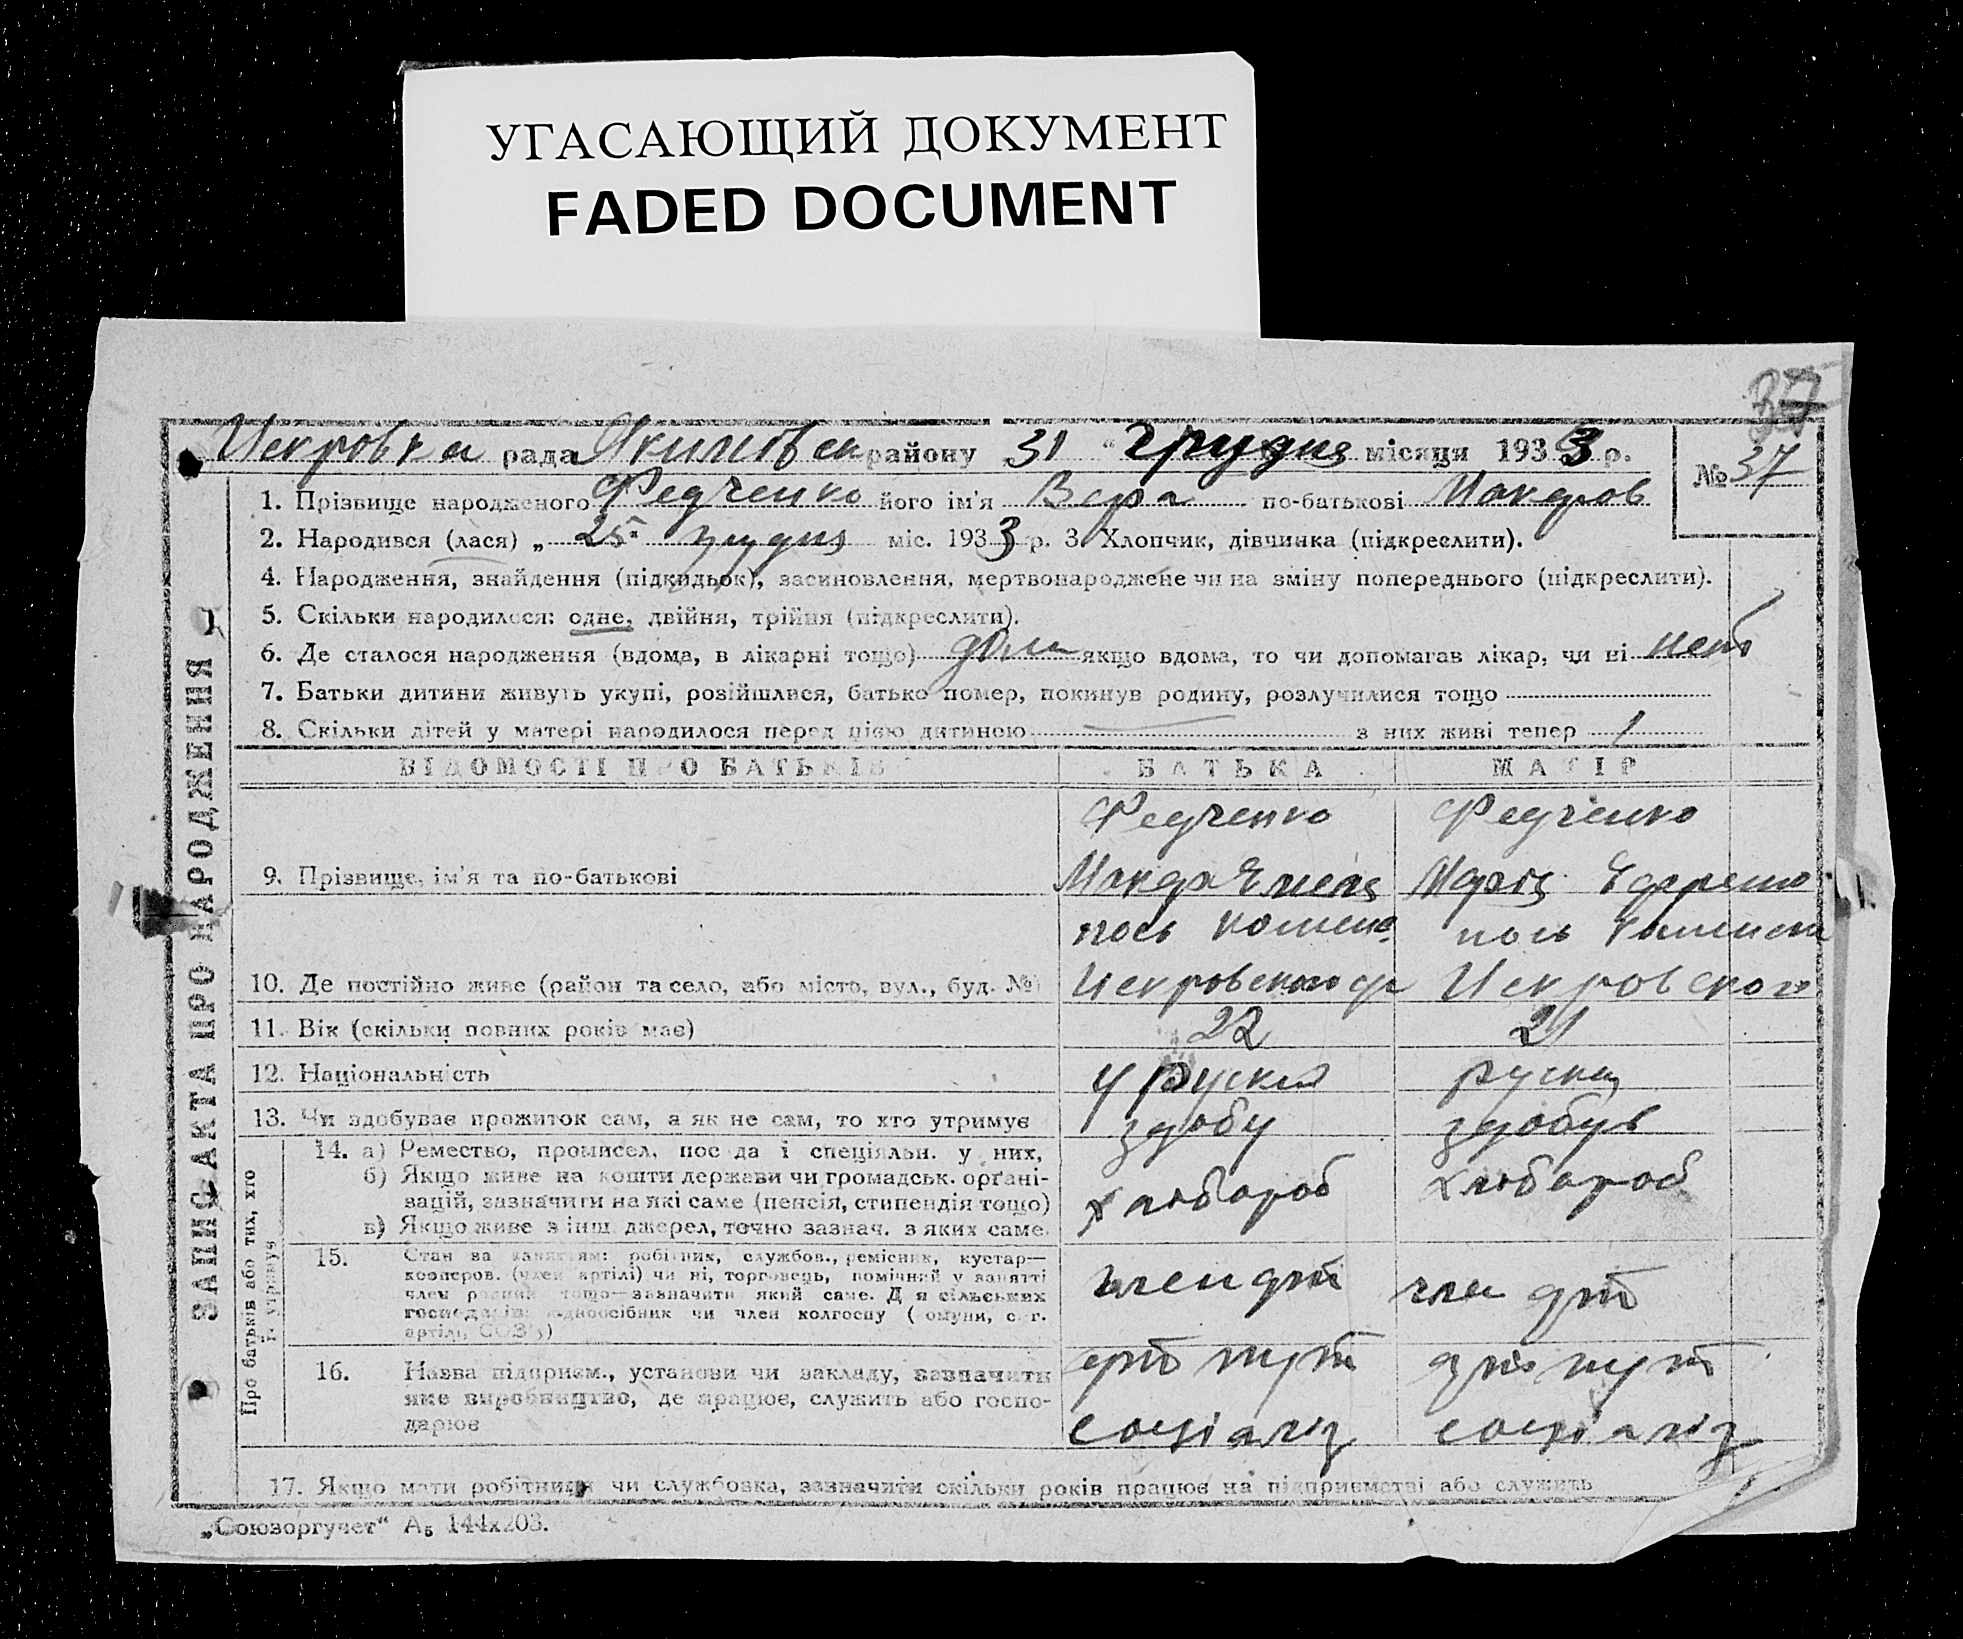 УГАСАЮЩИЙ ДОКУМЕНТ
FADED DOCUMENT
37
Искровка рада Якимовск району 31 " грудня місяця 1933 р.
№ 37
1. Прізвище народженого Федченко його ім'я Вера по-батькові Макаров
2. Народився (лася) „ 25" грудня міс. 1933 р. 3. Хлопчик, дівчинка (підкреслити).
4. Народження, знайдення (підкидьок), засиновлення, мертвонароджене чи на зміну попереднього (підкреслити).
5. Скільки народилося: одне, двійня, трійня (підкреслити).
6. Де сталося народження (вдома, в лікарні тощо) дома якщо вдома, то чи допомагав лікар, чи ні нет
7. Батьки дитини живуть укупі, розійшлися, батько помер, покинув родину, розлучилися тощо
8. Скільки дітей у матері народилося перед цією дитиною — з них живі тепер 1
ЗАПИС АКТА ПРО НАРОДЖЕННЯ
ВІДОМОСТІ ПРО БАТЬКІВ БАТЬКА МАТІР
Федченко Федченко
9. Прізвище, ім'я та по-батькові
10. Де постійно живе (район та село, або місто, вул., буд. №)
Искровского Искровского
11. Вік (скільки повних років має) 22 21
12. Національність руская
13. Чи здобуває прожиток сам, а як не сам, то хто утримує здобу здобув
Про батьків або тих, хто їх утримує
14. а) Ремество, промисел, посада і спеціяльн. у них,
б) Якщо живе на кошти держави чи громадськ. орґані-
зацій, зазначити на які саме (пенсія, стипендія тощо)
в) Якщо живе з інш. джерел, точно зазнач. з яких саме.
хлібороб хлібороб
15. Стан за заняттям: робітник, службов., ремісник, кустар—
кооперов. (член артілі) чи ні, торговець, помічний у занятті
член родини тощо—зазначити який саме. Для сільських
господарів: одноосібник чи член колгоспу (комуни, с.-г.
артілі, СОЗ'у)
член арт член арт
16. Назва підприєм., установи чи закладу, зазначити
яке виробництво, де працює, служить або госпо-
дарює
арт пут арт пут
соціаліз соціаліз
17. Якщо мати робітниця чи службовка, зазначити скільки років працює на підприємстві або служить
„Союзоргучет“ А₅ 144х203.